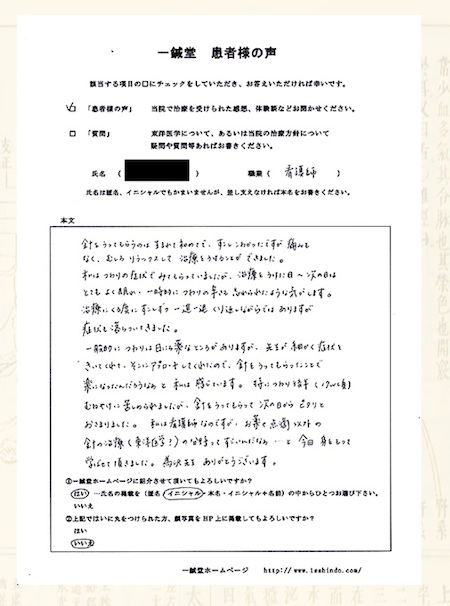 一鍼堂 患者様の声
該当する項目の口にチェックをしていただき、お答えいただければ幸いです。
☑ 「患者様の声」 当院で治療を受けられた感想、体験談などお聞かせください。
□ 「質問」 東洋医学について、あるいは当院の治療方針について
疑問や質問等あればお書きください。
氏名 ( ) 職業 ( 看護師 )
氏名は匿名、イニシャルでもかまいませんが、差し支えなければ本名をお書きください。
本文
針をうってもらうのは生まれて初めてで、すこしこわかったですが 痛みも
なく、むしろ リラックスして 治療をうけることが できました。
私はつわりの症状で みてもらっていましたが、治療をうけた日〜次の日は
とても よく眠れ、一時的に つわりの辛さも 忘れられたような気がします。
治療にくる度に すこしずつ 一進一退 くり返しながらではありますが
症状も落ちついてきました。
一般的に つわりは日にち薬なところがありますが、先生が 細かく症状を
きいてくれて、そこにアプローチしてくれたので、針をうってもらったことで
楽になったんだろうなぁと 私は 感じています。 特に つわり後半
むねやけに 苦しめられましたが、針をうってもらって 次の日から ピタリと
おさまりました。 私は看護師なのですが、お薬や点滴以外の
針の治療(東洋医学?)の 持って すごいんだなぁ…と 今回 身をもって
学ばせて頂きました。 先生 ありがとうございます。
①一鍼堂ホームページに紹介させて頂いてもよろしいですか?
はい ―氏名の掲載を(匿名・イニシャル・本名・イニシャル+名前)の中からひとつお選び下さい。
いいえ
②上記ではいに丸をつけられた方、顔写真をHP上に掲載してもよろしいですか?
はい
いいえ
一鍼堂ホームページ http://www.isshindo.com/